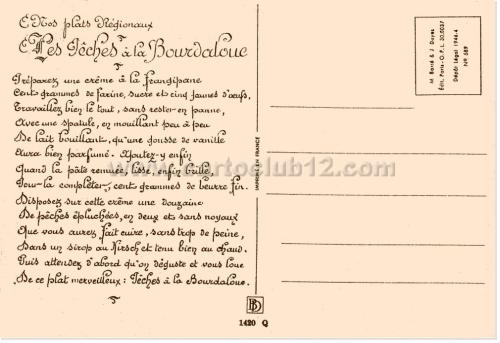 Nos plats Régionaux
Les Pêches à la Bourdaloue
Préparez une crème à la frangipane
Cent grammes de farine, sucre et cinq jaunes d'œufs.
Travaillez bien le tout, sans rester en panne,
Avec une spatule, en mouillant peu à peu
De lait bouillant, qu'une gousse de vanille
Aura bien parfumé. Ajoutez-y enfin
Quand la pâte remuée, lisse, enfin brille,
Pour la compléter, cent grammes de beurre fin.
Disposez sur cette crème une douzaine
De pêches épluchées, en deux et sans noyaux
Que vous aurez fait cuire, sans trop de peine,
Dans un sirop au Kirsch et tenu bien au chaud.
Puis attendez d'abord qu'on déguste et vous loue
De ce plat merveilleux : Pêches à la Bourdaloue.
IMPRIMÉ EN FRANCE
BD
1420 Q
M. Barré & J. Dayez
Édit. Paris-O.P.L. 30.5037
Dépôt Légal 1946-4
N° 589
cartoclub12.com